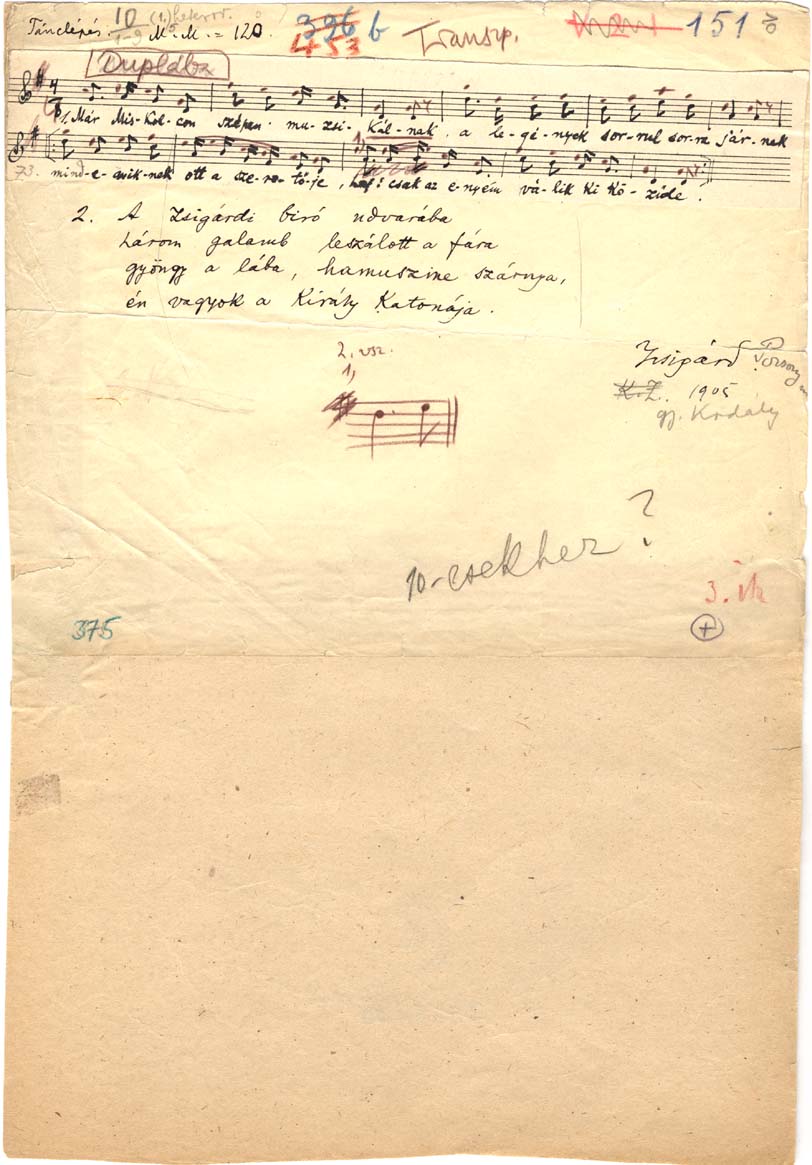 10 (1.) heterod.
Tánclépés. 1-9 M. M. = 120.
396 b
453
Transp.
151
Duplába
1. Már Mis-kol-con szépen mu-zsi-kál-nak, a le-gé-nyek sor-rul sor-ra jár-nak
73. mind-e-nik-nek ott a sze-re-tö-je, csak az e-nyém vá-lik ki kö-züle.
2. A Zsigárdi biró udvarába
három galamb leszálott a fára
gyöngy a lába, hamuszine szárnya,
én vagyok a Király Katonája.
Zsigárd Pozsony m
K.Z. 1905
gy. Kodály
2. vsz.
1,
10-esekhez?
3. ik
375
+